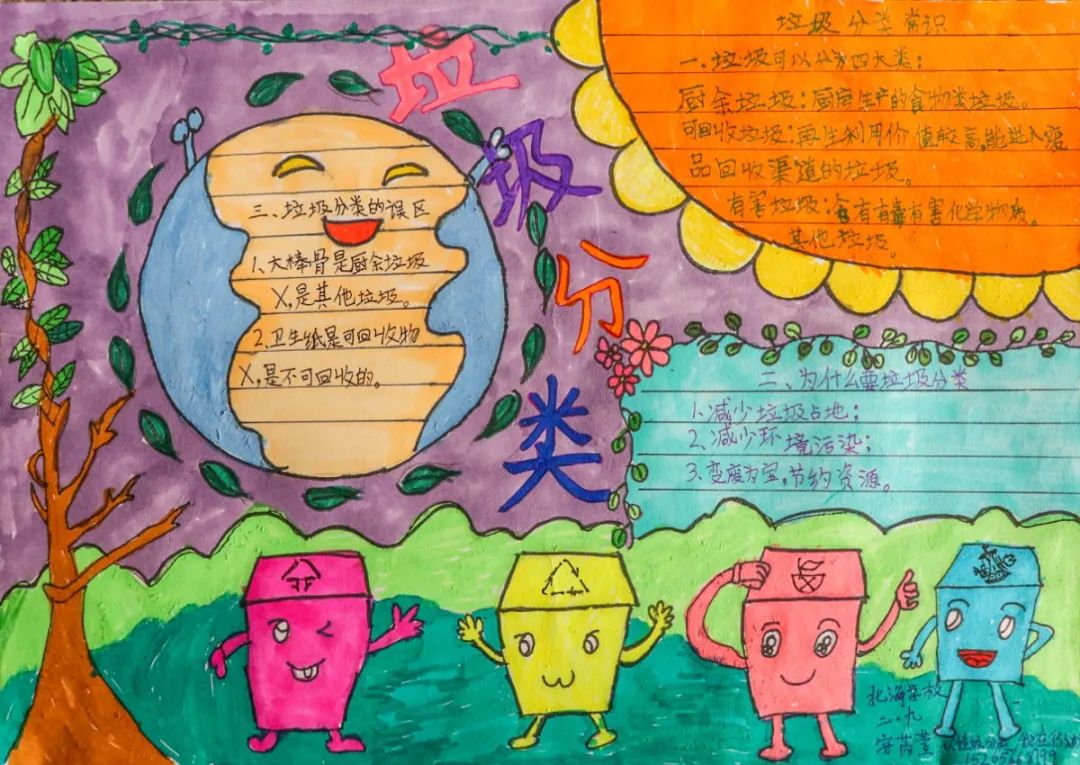 垃圾分类
垃圾分类常识
一、垃圾可以分为四大类：
厨余垃圾：厨房生产的食物类垃圾。
可回收垃圾：再生利用价值较高，能进入废
品回收渠道的垃圾。
有害垃圾：含有有毒有害化学物质。
其他垃圾。
二、为什么要垃圾分类
1、减少垃圾占地；
2、减少环境污染；
3、变废为宝，节约资源。
三、垃圾分类的误区
1、大棒骨是厨余垃圾
X，是其他垃圾。
2、卫生纸是可回收物
X，是不可回收的。
北海学校
二·九
安芮萱